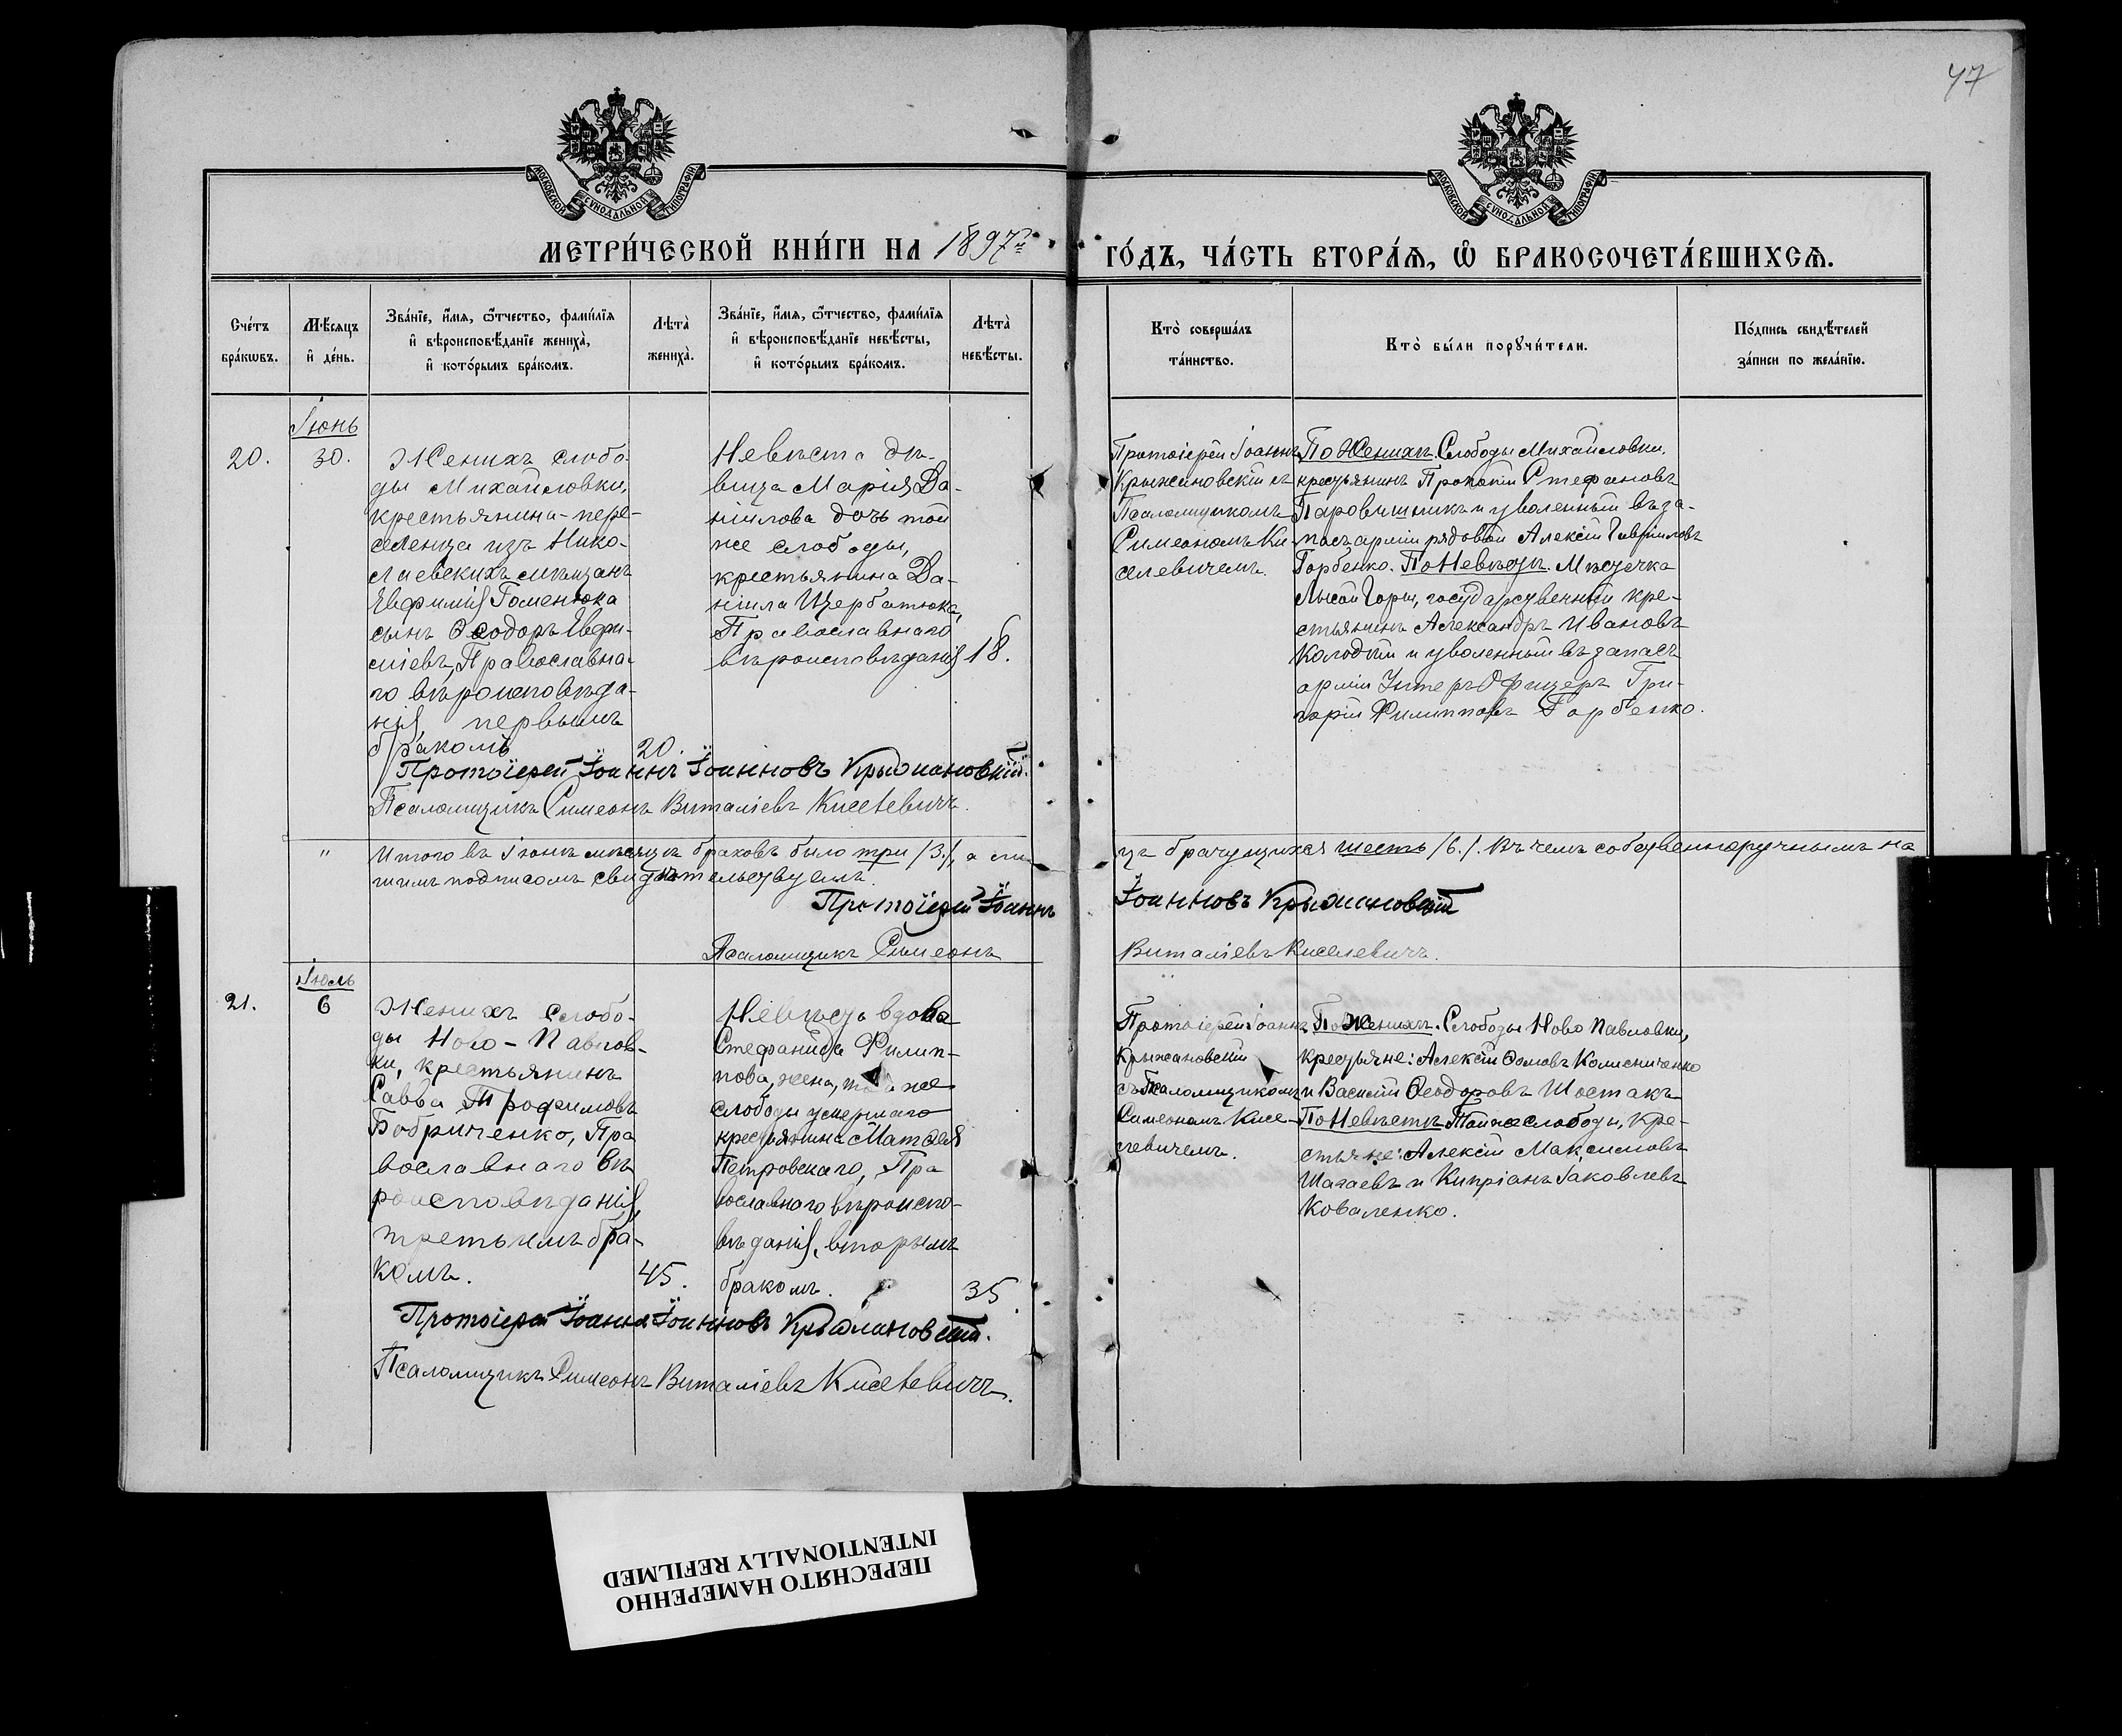 47
МОСКОВСКОЙ СУНОДАЛЬНОЙ ТИПОГРАФІИ
МОСКОВСКОЙ СУНОДАЛЬНОЙ ТИПОГРАФІИ
МЕТРИ́ЧЕСКОЙ КНИ́ГИ НА 1897й
ГО́ДЪ, ЧА́СТЬ ВТОРА́Ѧ, Ѡ҆ БРАКОСОЧЕТА́ВШИХСѦ.
Сче́тъ
бра́кѡвъ.
Мѣ́сяцъ
и҆ де́нь.
Зва́нїе, и҆́мя, ѻ҆́тчество, фами́лїя
и҆ вѣроисповѣ́данїе жениха̀,
и҆ кото́рымъ бра́комъ.
Лѣта̀
жениха̀.
Зва́нїе, и҆́мя, ѻ҆́тчество, фами́лїя
и҆ вѣроисповѣ́данїе невѣ́сты,
и҆ кото́рымъ бра́комъ.
Лѣта̀
невѣ́сты.
Кто̀ соверша́лъ
та́инство.
Кто̀ бы́ли порꙋчи́тели.
По́дпись свидѣ́телей
за́писи по жела́нїю.
Іюнь
20.
30.
Женихъ слобо-
ды Михайловки,
крестьянина-пере-
селенца изъ Нико-
лаевскихъ мѣщанъ
Евфимія Гоменюка
сынъ Ѳеодоръ Евфи-
міевъ, Православна-
го вѣроисповѣда-
нія, первымъ
бракомъ
20.
Невѣста дѣ-
вица Марія Да-
ніилова дочь той
же слободы,
крестьянина Да-
ніила Щербатюка,
Православнаго
вѣроисповѣданія
18.
Протоіерей Іоаннъ
Крыжановскій съ
Псаломщикомъ
Симеономъ Ки-
селевичемъ.
По Женихѣ. Слободы Михайловки,
крестьянинъ Прокопій Стефановъ
Паровишникъ и уволенный въ за-
пасъ арміи рядовой Алексій Гавриловъ
Горбенко. По Невѣстѣ. Мѣстечка
Лысой Горы, государственный кре-
стьянинъ Александръ Ивановъ
Колодій и уволенный въ запасъ
арміи Унтеръ Офицеръ Гри-
горій Филипповъ Горбенко.
Протоіерей Іоаннъ Іоанновъ Крыжановскій.
Псаломщикъ Симеонъ Виталіевъ Киселевичъ.
" Итого въ Іюнѣ мѣсяцѣ браковъ было три /3/, а ли-
цъ брачущихся шесть /6/. Въ чемъ собственноручнымъ на-
шимъ подписомъ свидѣтельствуемъ.
Протоіерей Іоаннъ Іоанновъ Крыжановскій
Псаломщикъ Симеонъ Виталіевъ Киселевичъ.
Іюль
21.
6
Женихъ Слобо-
ды Ново-Павлов-
ки, крестьянинъ
Савва Трофимовъ
Бобриченко, Пра-
вославнаго вѣ-
роисповѣданія,
третьимъ бра-
комъ.
45.
Невѣста вдова
Стефанида Филип-
пова, жена, той же
слободы умершаго
крестьянина Матѳея
Петровскаго, Пра-
вославнаго вѣроиспо-
вѣданія, вторымъ
бракомъ.
35.
Протоіерей Іоаннъ
Крыжановскій
съ Псаломщикомъ
Симеономъ Кисе-
левичемъ.
По Женихѣ. Слободы Ново Павловки,
крестьяне: Алексій Ѳомовъ Колисниченко
и Василій Ѳеодоровъ Шостакъ
По Невѣстѣ Той же слободы, кре-
стьяне: Алексій Максимовъ
Шагаевъ и Кипріанъ Іаковлевъ
Коваленко.
Протоіерей Іоаннъ Іоанновъ Крыжановскій.
Псаломщикъ Симеонъ Виталіевъ Киселевичъ.
ПЕРЕСНЯТО НАМЕРЕННО
INTENTIONALLY REFILMED